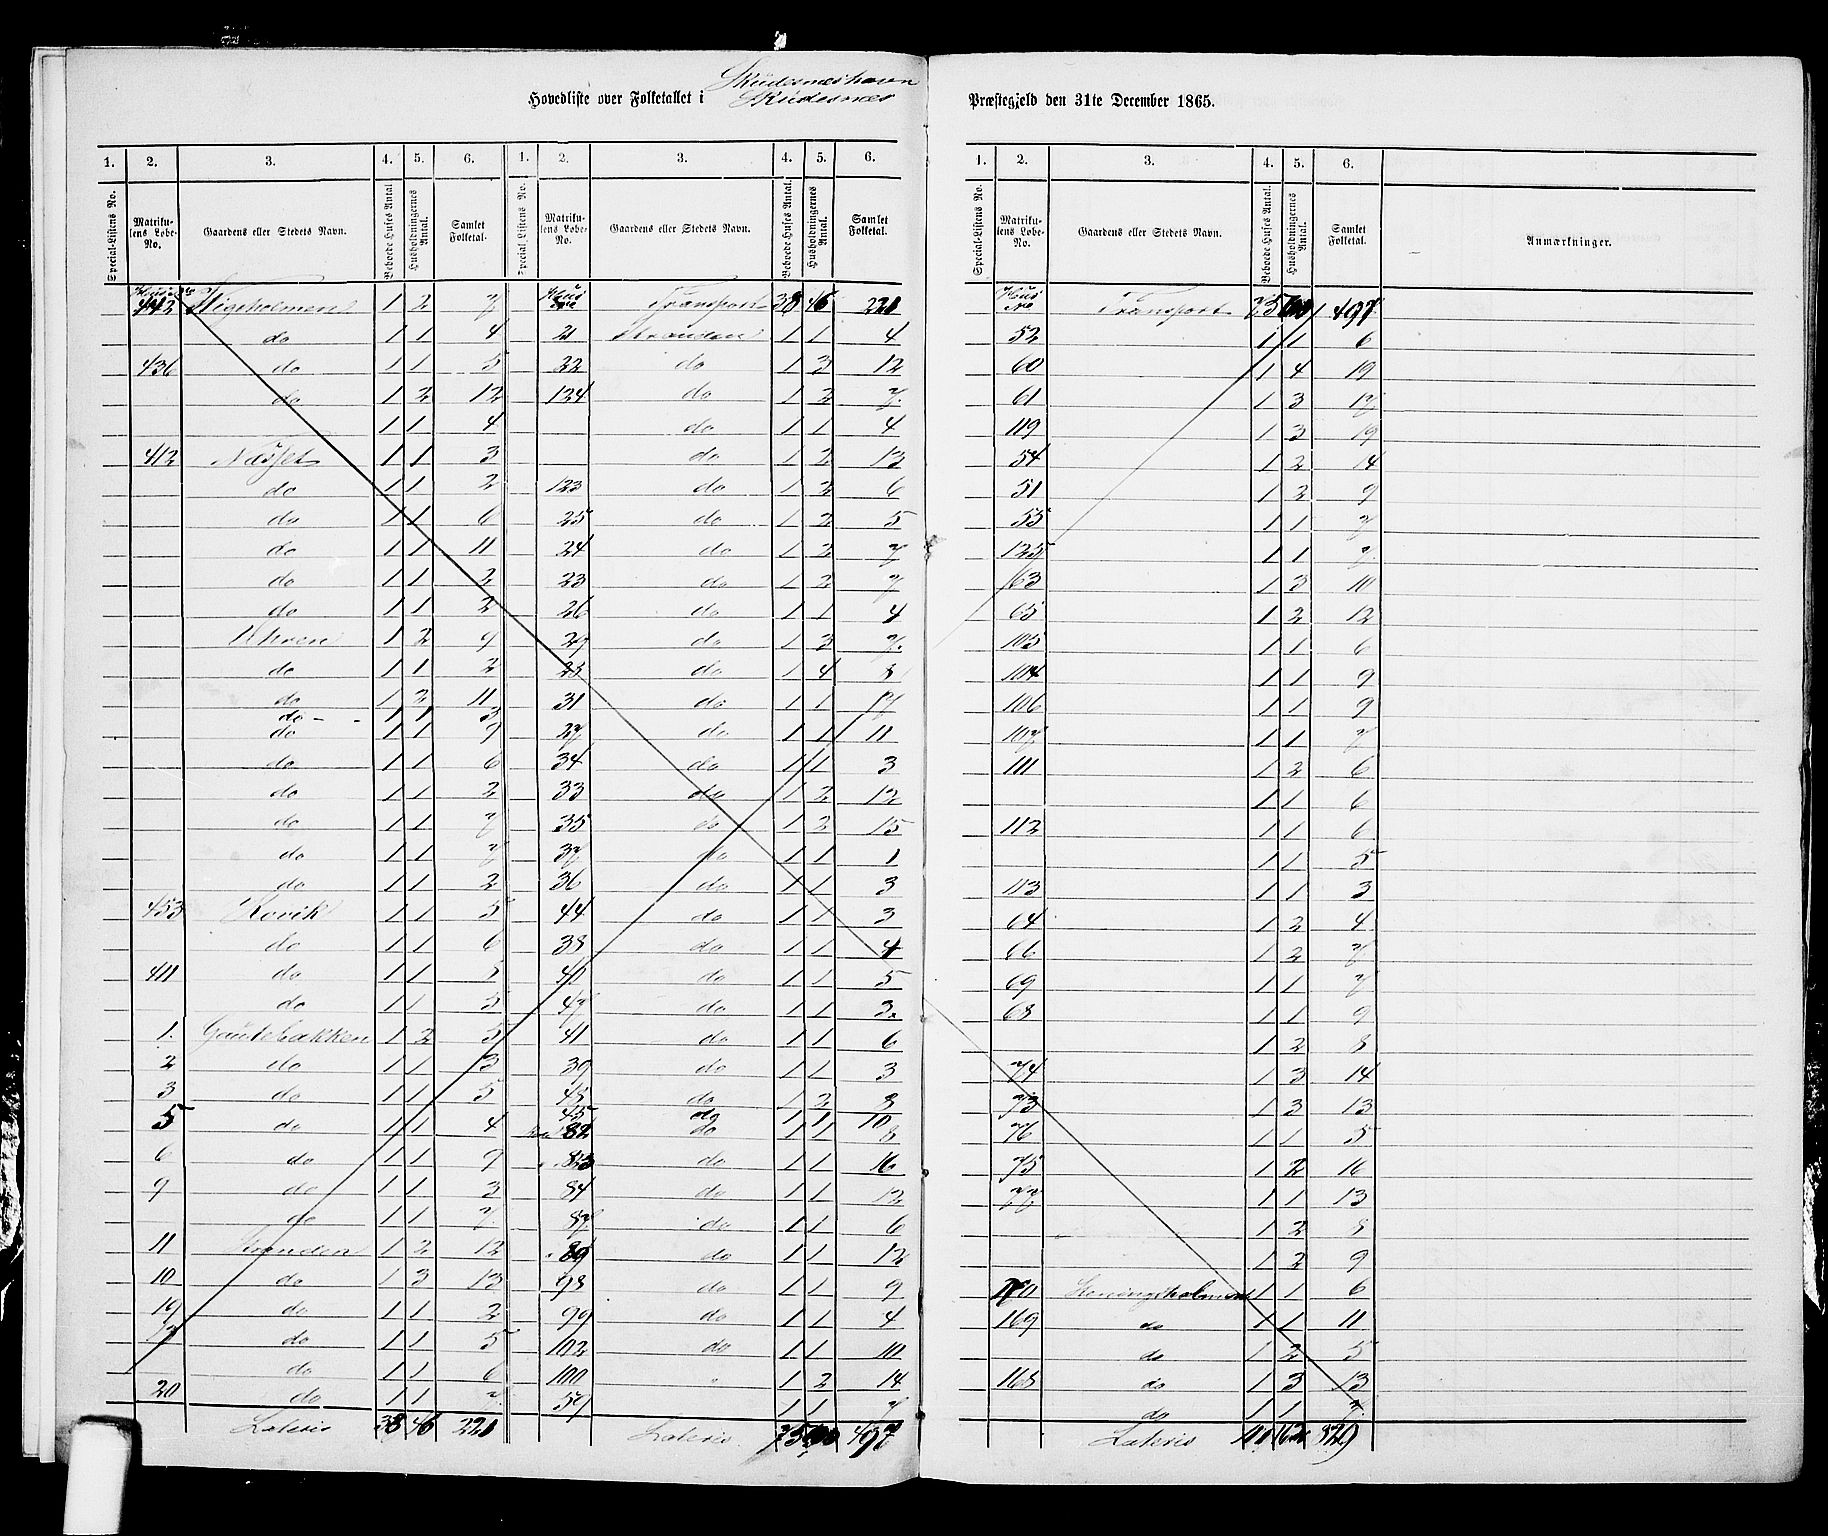 Skudesneshavn
Hovedliste over Folketallet i Skudesnæs Præstegjeld den 31te December 1865.
1. 2. 3. 4. 5. 6. 1. 2. 3. 4. 5. 6.
Special-Listens No. Matrikulens Løbe-No. Gaardens eller Stedets Navn. Beboede Huses Antal Husholdningernes Antal. Samlet Folketal. Special-Listens No. Matrikulens Løbe-No. Gaardens eller Stedets Navn. Beboede Huses Antal. Husholdningernes Antal. Samlet Folketal.
442 1 2 7 Hus No Transport 38 46 221
do 1 1 4 21 Stranden 1 1 4
436 do 1 1 5 22 do 1 3 12
do 1 2 12 124 do 1 2 7.
1 1 4 do 1 1 4
412 Næsset 1 1 3 do 1 2 13
do 1 1 2 123 do 1 2 6
do 1 1 6 25 do 1 2 5
do 1 1 11 24 do 1 2 7
do 1 1 2 23 do 1 2 7
do 1 1 2 26 do 1 1 4
1 2 9 29 do 1 3 7.
do 1 1 2 28 do 1 4 8
do 1 2 11 31 do 1 1 17
do - - 1 1 3
do 1 1 9 27 do 1 1 11
do 1 1 6 34 do 1 1 3
do 1 1 2 33 do 1 2 12
do 1 1 7 35 do 1 2 15
do 1 1 7 37 do 1 1 1
do 1 1 2 36 do 1 1 3
453 Kovik 1 1 5 44 do 1 1 3
do 1 1 6 38 do 1 1 4
411 do 1 1 8 40 do 1 1 5
do 1 1 5 47 do 1 1 3.
1. Gautebækken 1 2 5 41 do 1 1 6
2 do 1 1 3 39 do 1 1 3
3 do 1 1 5 48 do 1 2 8
45 do 1 1 10
5 do 1 1 4 82 do 1 1 8
6 do 1 1 9 83 do 1 1 16
9 do 1 1 3 84 do 1 1 12
do 1 1 7. 87 do 1 1 6
11 Stranden 1 2 12 89 do 1 1 12
10 do 1 3 13 98 do 1 1 9
19 do 1 1 2 99 do 1 1 4
do 1 1 5 102 do 1 1 10
do 1 1 6 100 " 1 2 14
20 do 1 1 7. 59 1 1 7
Lateris 38 46 221 Lateris 75 497
1. 2. 3. 4. 5. 6.
Special-Listens No. Matrikulens Løbe-No. Gaardens eller Stedets Navn. Beboede Huses Antal. Husholdningernes Antal. Samlet Folketal. Anmærkninger.
Hus No Transport 75 497
52 1 1 6
60 1 4 19
61 1 3 17
119 1 3 19
54 1 2 14
51 1 2 9
55 1 1 7
125 1 1 7
63 1 3 10
65 1 2 12
105 1 1 6
104 1 1 9
106 1 1 9
107 1 1 7
111 1 2 6
1 1 6
112 1 1 6
1 1 5
113 1 1 3
64 1 2 4
66 1 2 7
69 1 1 7
68 1 1 9
1 2 8
74 1 3 14
73 1 3 13
76 1 1 5
75 1 2 16
77 1 1 13
1 2 8
1 2 9
170 1 1 6
169 do 1 1 11
do 1 2 5
168 do 1 3 13
do 1 1 7.
Lateris 111 162 829